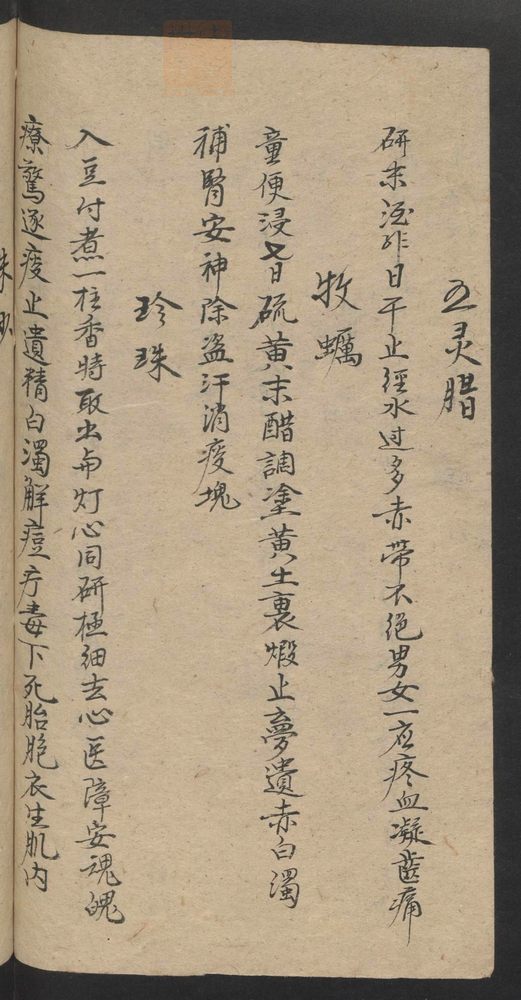 五灵腊
研末酒非日干止經水过多赤带不絕男女一应疼血凝齒痛
牧蠣
童便浸七日硫黄末醋調塗黄土裹煅止夢遺赤白濁
補腎安神除盗汗消痰塊
珍珠
入豆付煮一柱香時取出与灯心同研極细去心医障安魂魄
療驚逐痰止遺精白濁解痘疔毒下死胎胞衣生肌内